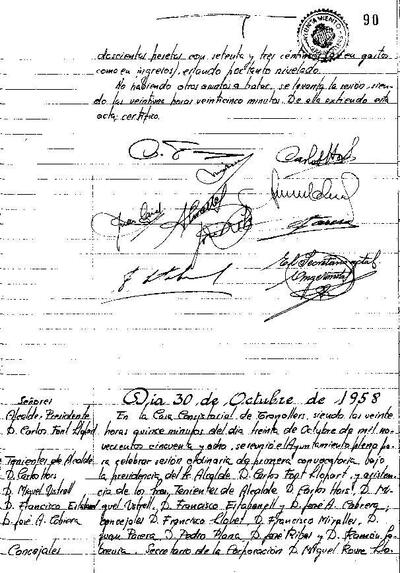 90
AYUNTAMIENTO
doscientas pesetas con setenta y tres céntimos en gastos
como en ingresos, estando por tanto nivelado.
No habiendo otros asuntos a tratar, se levanta la sesión, sien-
do las veintiuna horas veinticinco minutos. De ella extiendo esta
acta, certifico.
El Secretario actal.
Día 30 de Octubre de 1958
Señores
Alcalde-Presidente
D. Carlos Font Llopart
Tenientes de Alcalde
D. Carlos Host
D. Miguel
D. Francisco Estabanell
D. José A. Cabrera
Concejales
En la Casa Consistorial de Granollers, siendo las veinte
horas quince minutos del día treinta de Octubre de mil no-
vecientos cincuenta y ocho, se reunió el Ayuntamiento pleno pa-
ra celebrar sesión ordinaria de primera convocatoria, bajo
la presidencia del Sr. Alcalde D. Carlos Font Llopart, y asisten-
cia de los Sres. Tenientes de Alcalde D. Carlos Host, D. Mi-
guel D. Francisco Estabanell y D. José A. Cabrera;
concejales D. Francisco Llobet, D. Francisco Miralles, D.
Juan D. Pedro Plana, D. José Ribas y D. Ramón
Secretario de la Corporación D. Miguel